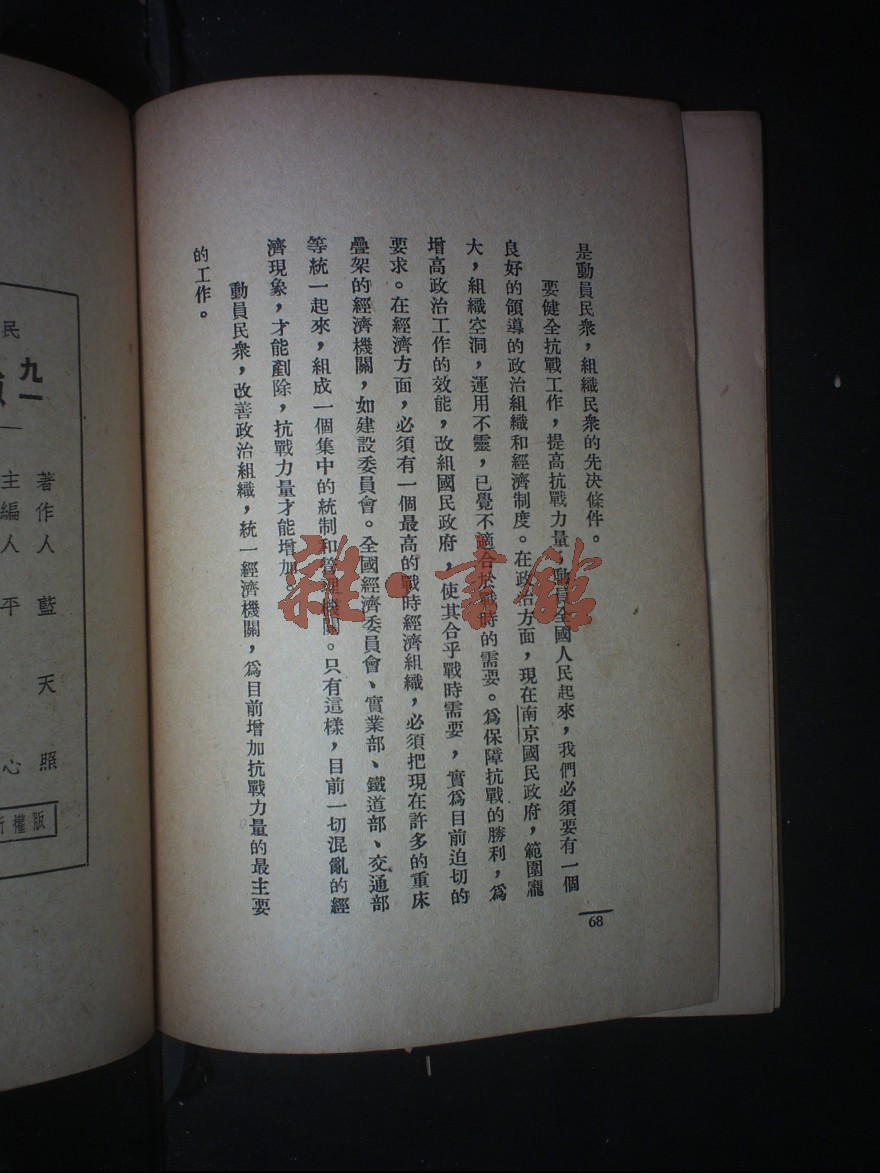 是動員民衆，組織民衆的先決條件。
要健全抗戰工作，提高抗戰力量，動員全國人民起來，我們必須要有一個
良好的領導的政治組織和經濟制度。在政治方面，現在南京國民政府，範圍龐
大，組織空洞，運用不靈，已覺不適合於戰時的需要。爲保障抗戰的勝利，爲
增高政治工作的效能，改組國民政府，使其合乎戰時需要，實爲目前迫切的
要求。在經濟方面，必須有一個最高的戰時經濟組織，必須把現在許多的重床
疊架的經濟機關，如建設委員會。全國經濟委員會、實業部、鐵道部、交通部
等統一起來，組成一個集中的統制和管理機關。只有這樣，目前一切混亂的經
濟現象，才能剷除，抗戰力量才能增加。
動員民衆，改善政治組織，統一經濟機關，爲目前增加抗戰力量的最主要
的工作。
68
雜·書館
民
九一
著作人 藍天照
主編人 平心
版權所